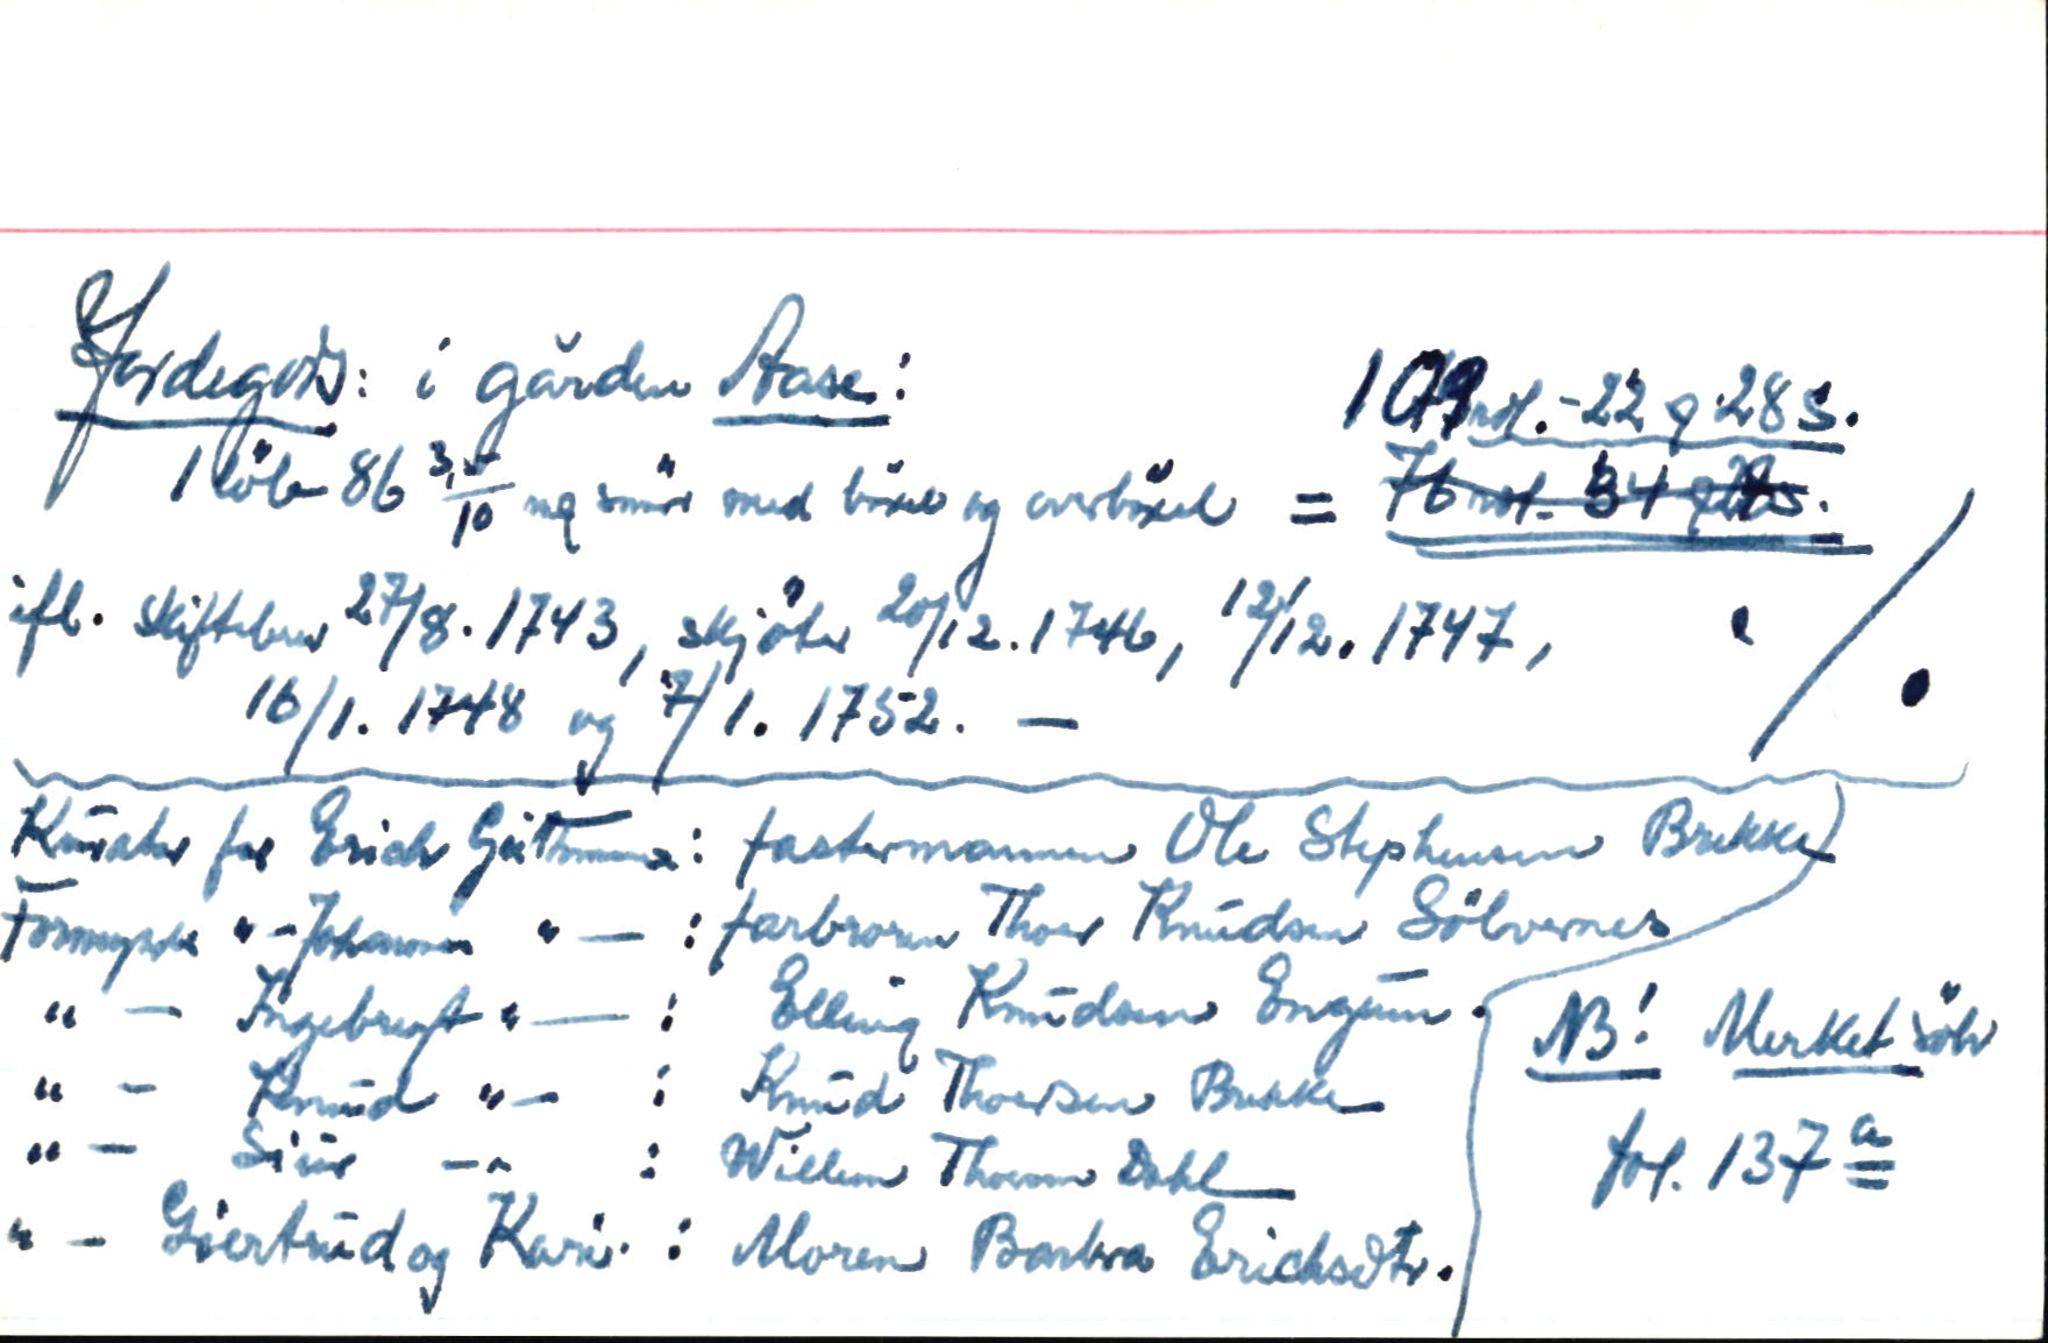 Jordegods: i gården Aase:
109 rdl. - 22 q 28 s.
1 löb 86 3,5/10 mq smör med böxel og overböxel = 76 rdl. 34 q s.
ifl. skiftebrev 27/8. 1743, skjöter 20/12. 1746, 12/12. 1747,
16/1. 1748 og 7/1. 1752. —
Kurator for Erich Guttormsen: fastermannen Ole Stephensen Brekke
Formynder " - Johannes " — : farbroren Thoer Knudsen Sölvernes
" — Ingebregt " — : Elling Knudsen Engum.
" — Knud " — : Knud Thoersen Brekke
" — Siur — " : Willem Thorsen Dahl
" — Giertrud og Kari : Moren Barbra Erichsdtr.
NB! Merket sölv
fol. 137 a